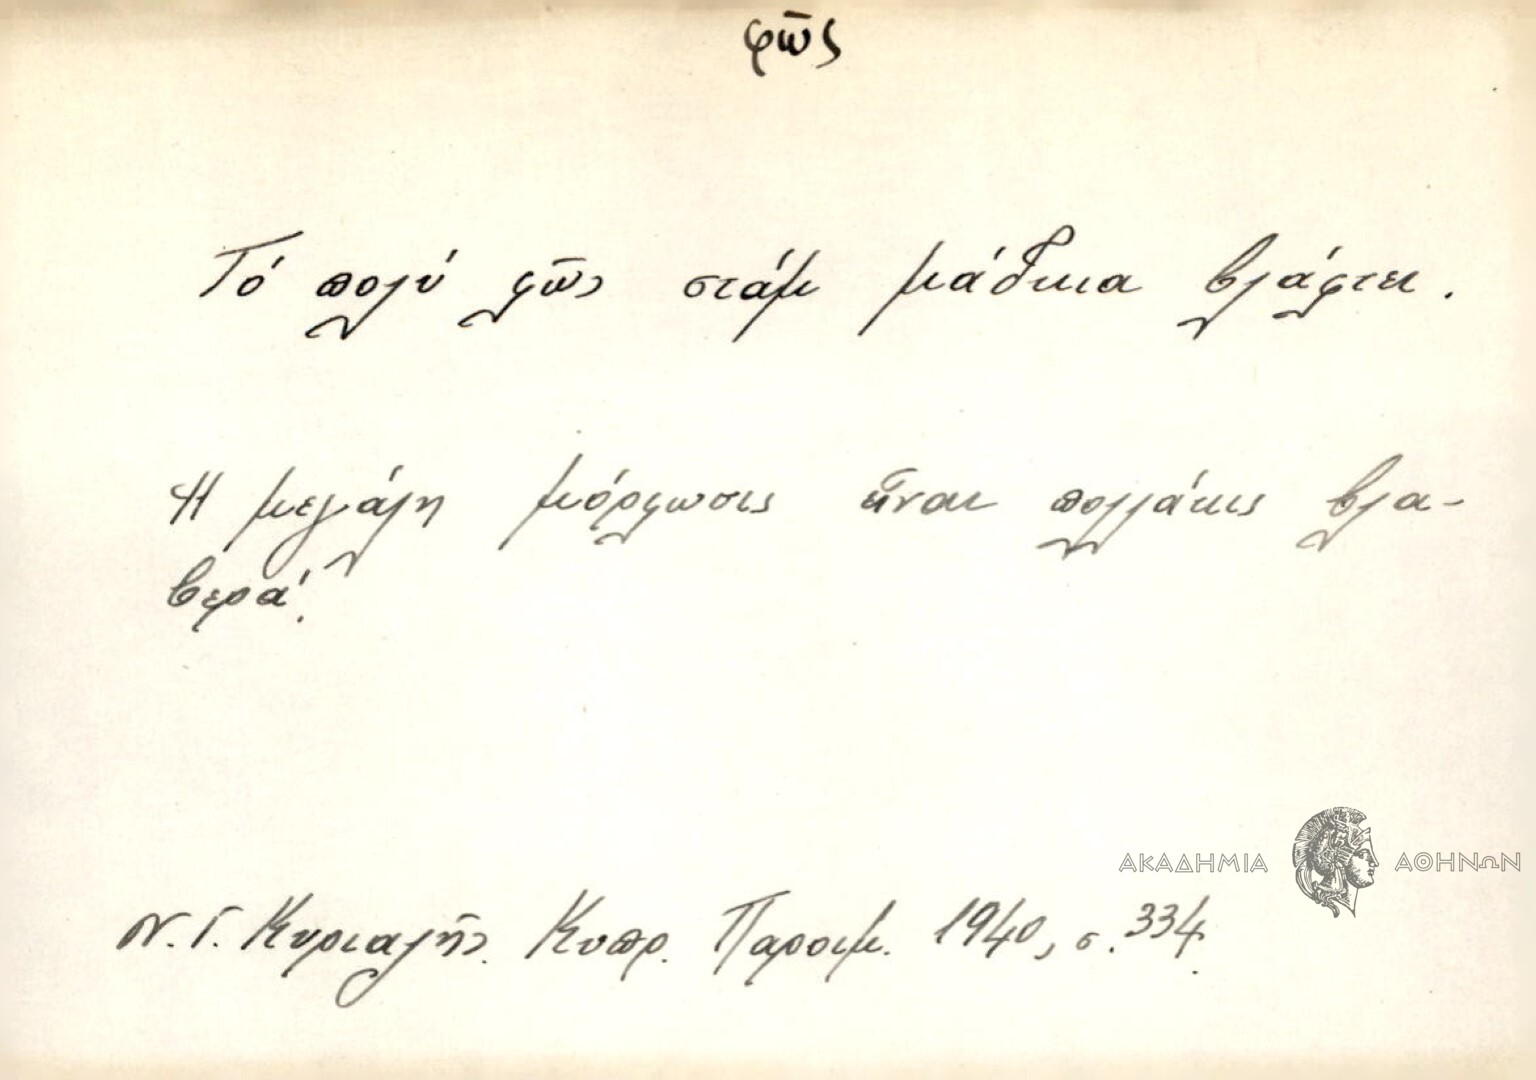 φῶς
Τό πολύ φῶς στάμ μάδκια βλάφτει.
Ἡ μεγάλη μόρφωσις εἶναι πολλάκις βλα-
βερά.
ΑΚΑΔΗΜΙΑ ΑΘΗΝΩΝ
Ν. Γ. Κυριαζῆς. Κυπρ. Παροιμ. 1940, σ. 334.